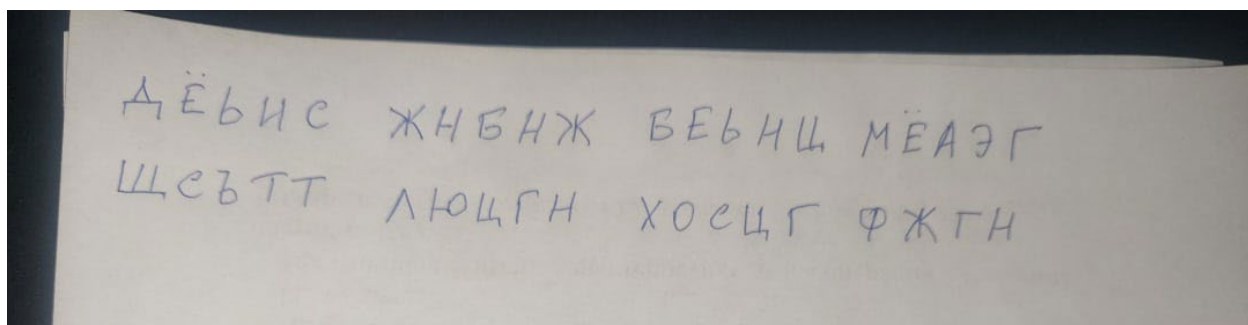 ДЁЬНС ЖНБНЖ БЕЬНЦ МЁАЭГ
ЩСЪТТ ЛЮЦГН ХОСЦГ ФЖГН